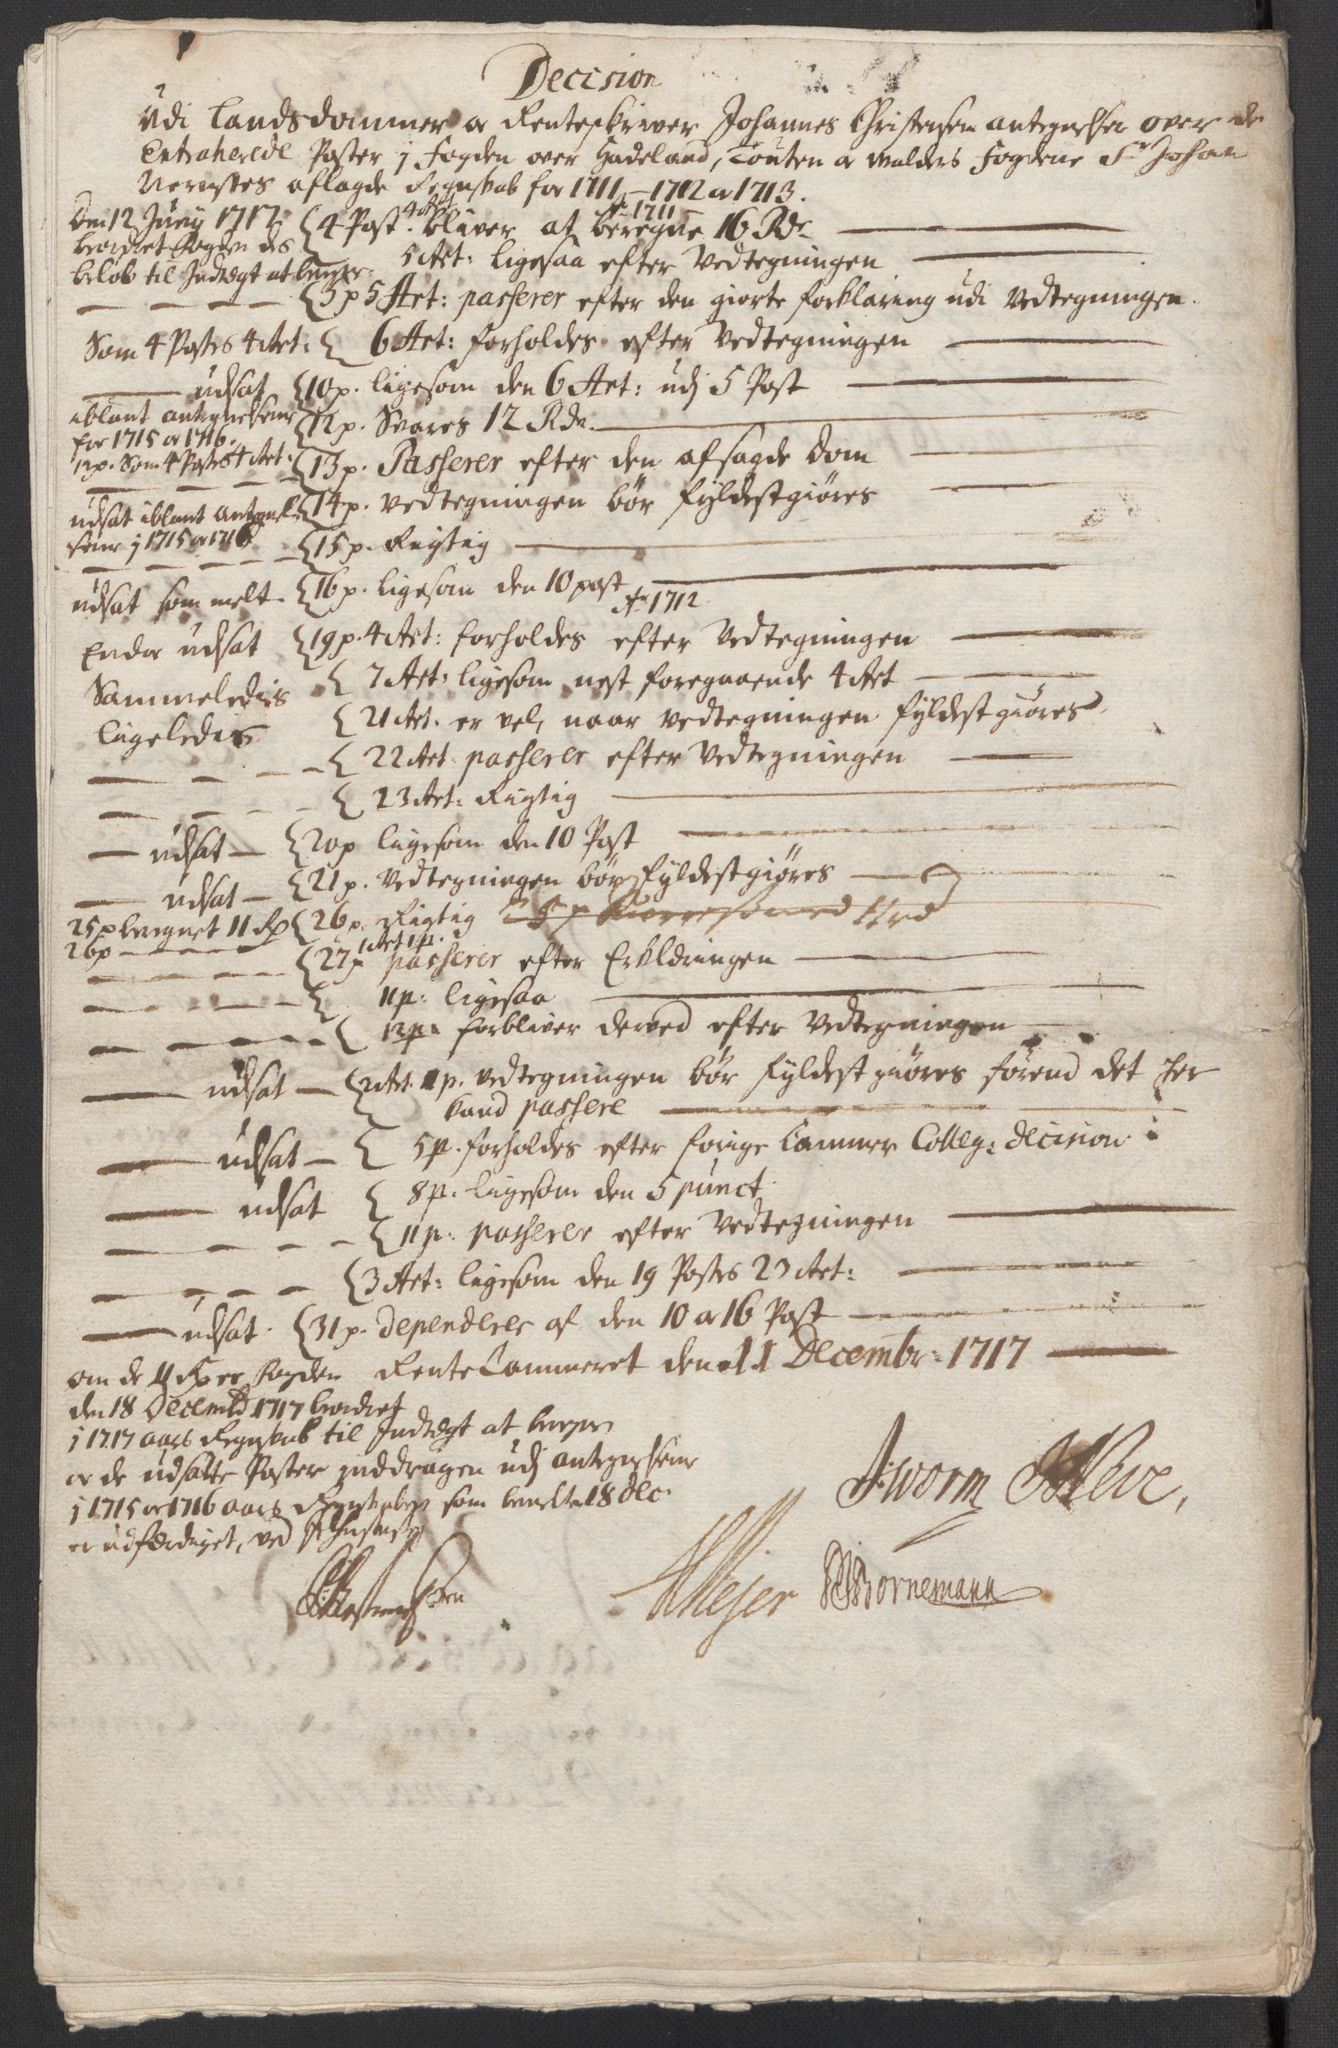 Decision
Udi Landsdommer or Renteskriver Johannes Christensen antegnelser over de
Extraherede Poster j Fogden over Hadeland, Touten or Walders Fogderie Sr Johan
Vernstes aflagde Regnskab for 1711 - 1712 or 1713.
Ao 1711
Den 12 Junij 1717
beordret Fogden des
beløb til Indtegt at beregne.
4 Post. 4 Art: bliver at beregne 16 Rdr
5 Art: ligesaa efter Vedtegningen
5 p 5 Art: passerer efter den giorte forklaring udi Vedtegningen.
Som 4 Postes 4 Art: 6 Art: forholdes efter Vedtegningen
udsat 10 p. ligesom den 6 Art: udj 5 Post
iblant antegnelserne
for 1715 or 1716.
12 p. Svares 12 Rdr.
12 p. Som 4 Postes 4 Art: 13 p. Passerer efter den afsagde Dom
14 p. Vedtegningen bør fyldestgiøres
udsat iblant antegnel-
serne j 1715 or 1716
15 p. Rigtig
udsat som melt. 16 p. ligesom den 10 post
Ao 1712
Endu udsat 19 p. 4 Art: forholdes efter Vedtegningen
Sammeledis 7 Art: ligesom nest foregaaende 4 Art
Ligeledis 21 Art. er vel, naar Vedtegningen fyldestgiøres.
22 Art passerer efter Vedtegningen
23 Art: Rigtig
udsat 20 p ligesom den 10 Post
udsat 21 p. Vedtegningen bør fyldestgiøres
25 p beregnet 11 Rd 26 p. Rigtig
26 p 27 p 1 Art 1 p. passerer efter Erkldringen
11 p: ligesaa
12 p. forbliver derved efter Vedtegningen
udsat 2 Art. 11 p. Vedtegningen bør fyldestgiøres førend det her
kand passere
udsat 5 p. forholdes efter forige Cammer Colleg: decision
udsat 8 p. ligesom den 5 punct.
11 p: passerer efter Vedtegningen
3 Art: ligesom den 19 Postes 23 Art:
udsat. 31 p. dependerer af den 10 or 16 Post
RenteCammeret den 11 Decembr: 1717
om de 11 Rd er Fogden
den 18 Decembr 1717 beordret
j 1717 aars Regnskab til Indtegt at beregne
or de udsatte Poster inddragen udj antegnelserne
j 1715 or 1716 aars Regnskaber som bemelte 18 dec.
er udferdiget, ved
JWorm
Meyer Bornemann